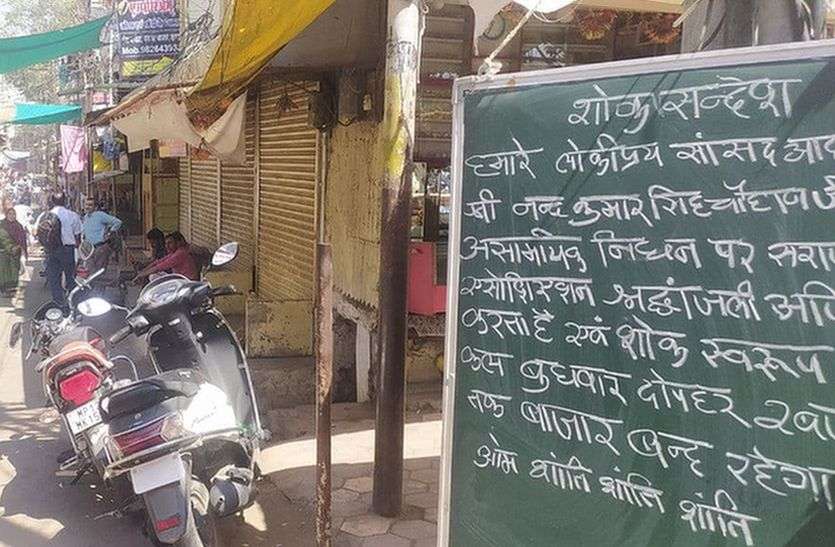 Mob.982643
MP
MK
शोक सन्देश
हमारे लोकप्रिय सांसद आद
श्री नन्दकुमार सिंह चौहान जी
असामयिक निधन पर सरा
एसोशिएशन श्रद्धांजली अर्पि
करता है एवं शोक स्वरूप
कल बुधवार दोपहर २ बजे
तक बाजार बन्द रहेगा
ओम शांति शांति शांति